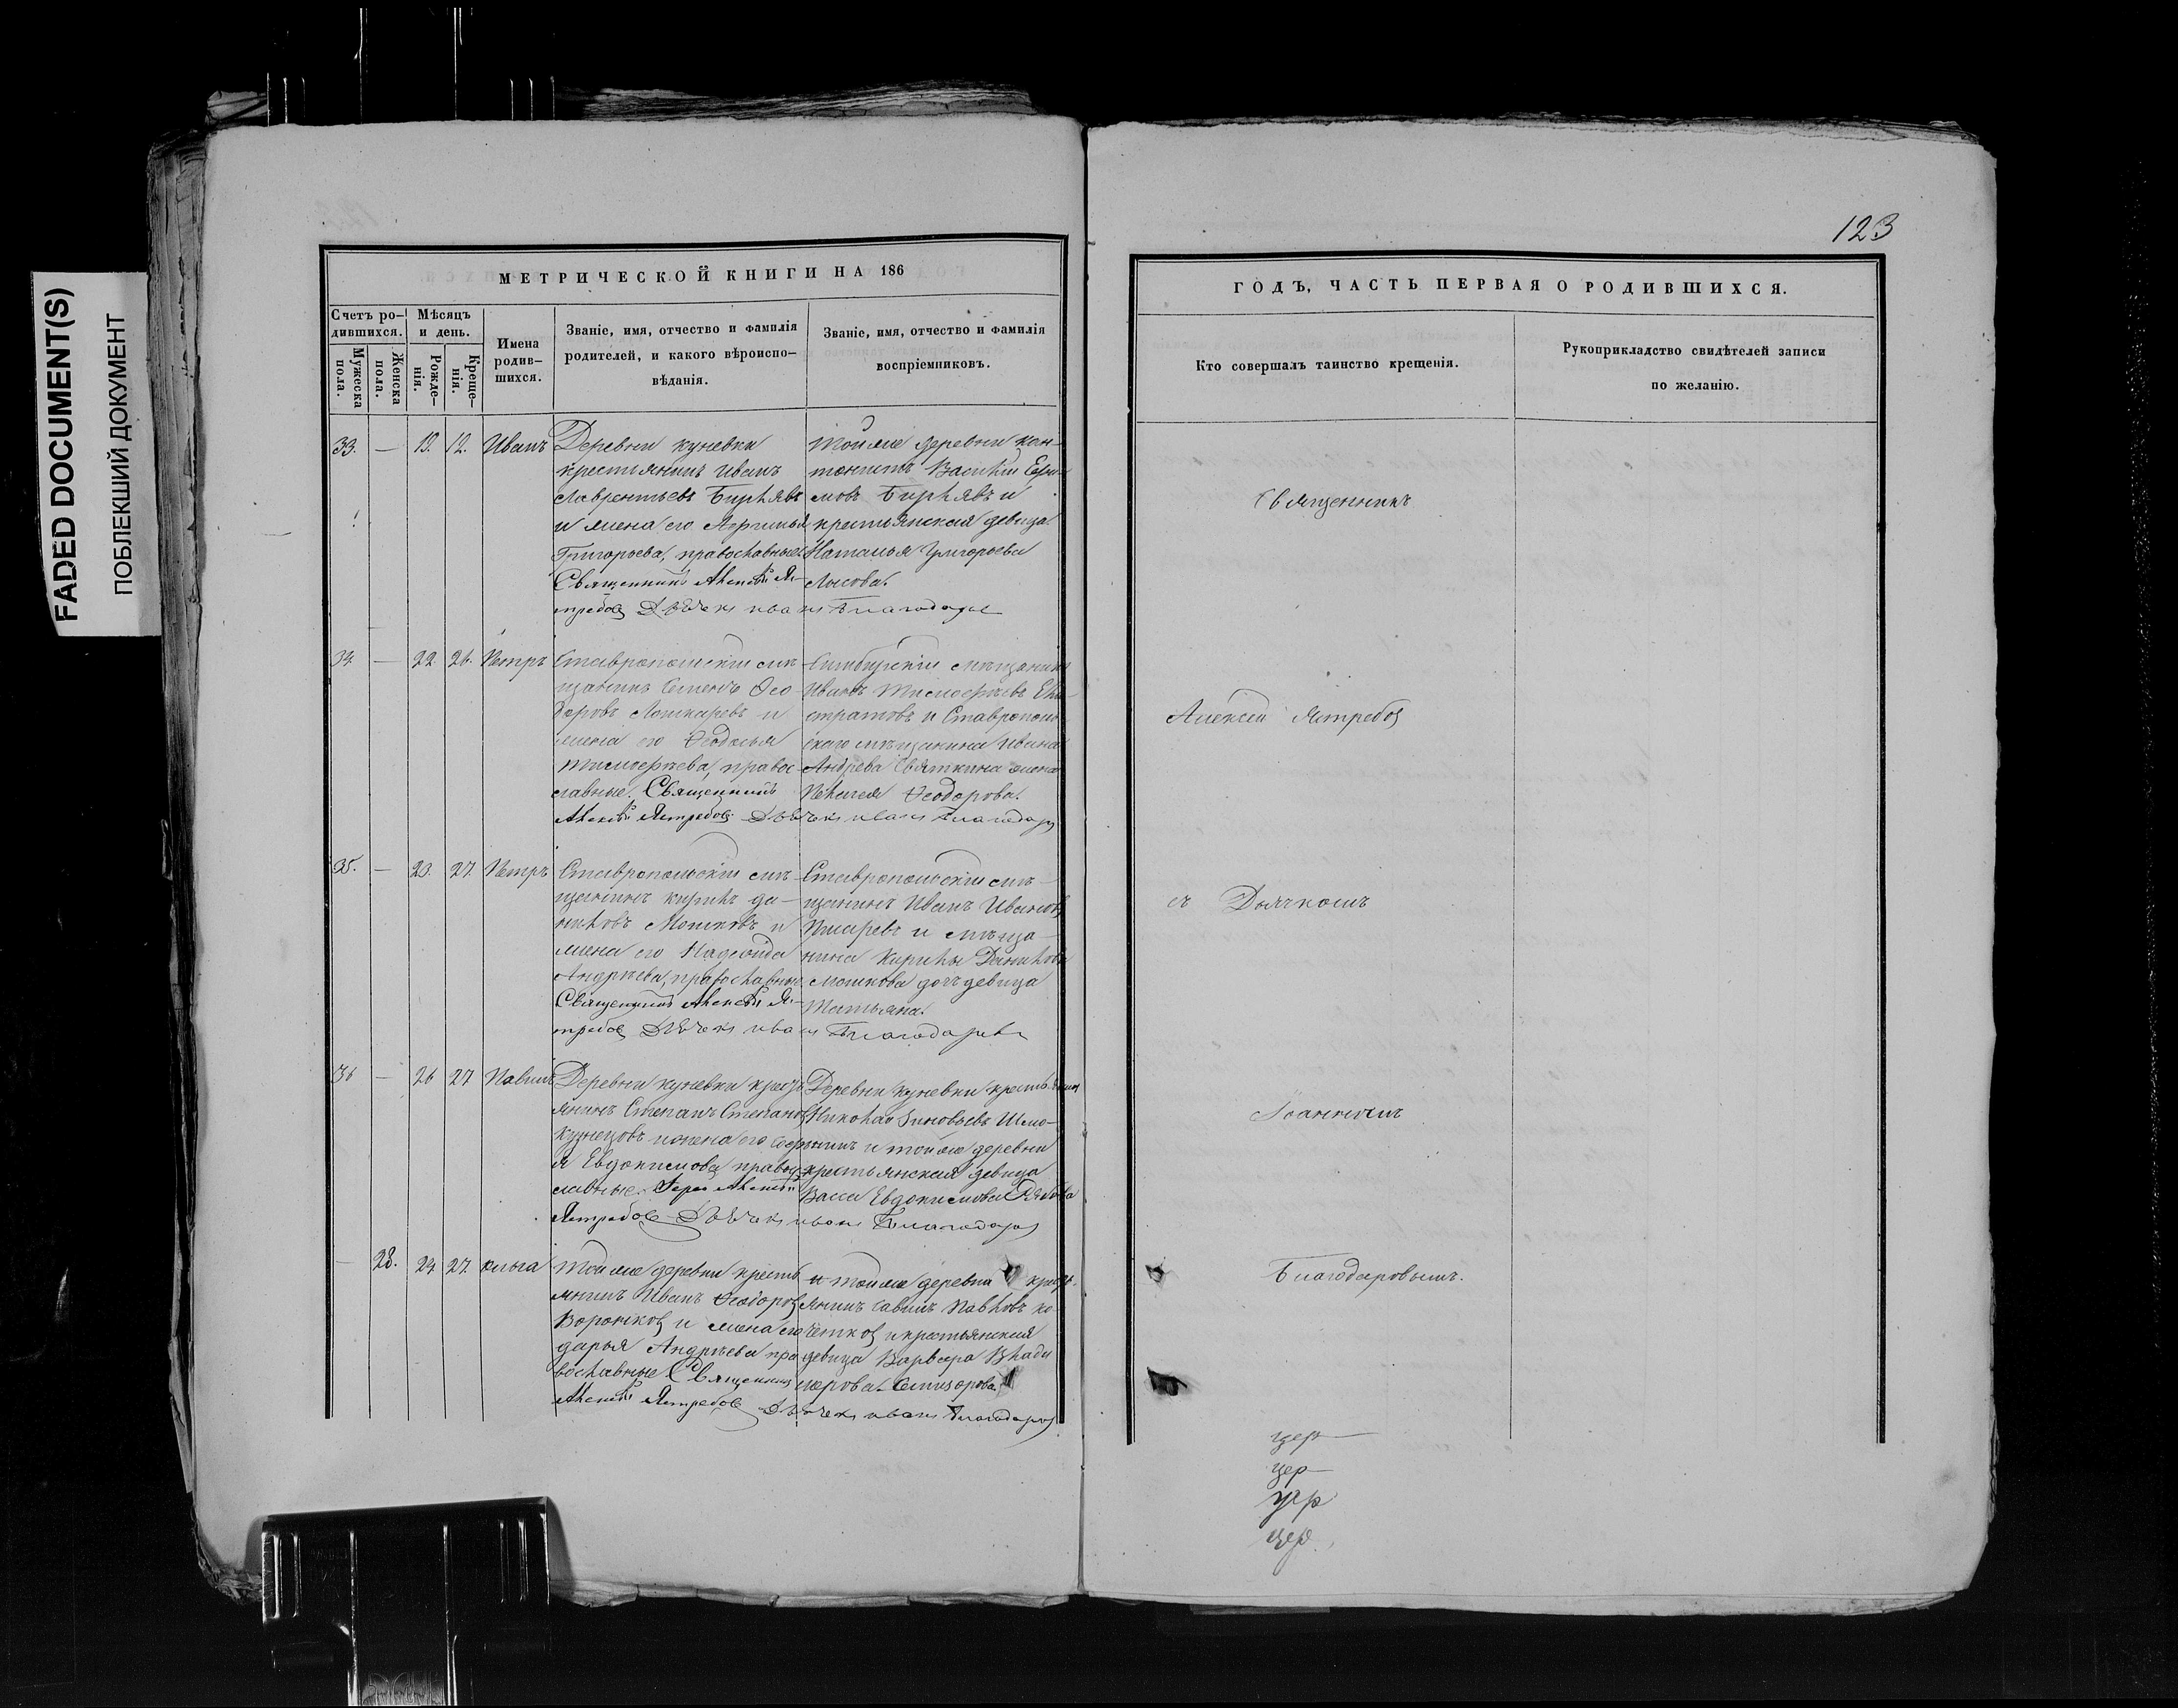 FADED DOCUMENT(S)
ПОБЛЕКШИЙ ДОКУМЕНТ
123
МЕТРИЧЕСКОЙ КНИГИ НА 186
Счетъ ро-
дившихся.
Мужеска
пола.
Женска
пола.
Мѣсяцъ
и день.
Рожде-
нія.
Креще-
нія.
Имена
родив-
шихся.
Званіе, имя, отчество и фамилія
родителей, и какого вѣроиспо-
вѣданія.
Званіе, имя, отчество и фамилія
воспріемниковъ.
33. — 12. Иванъ
Деревни куневки
крестьянинъ Иванъ
Лаврентьевъ
и жена его
Григорьева, православные.
Священникъ Алексѣй Яс-
требов Дьячекъ иванъ Благодаров
Тойже деревни кан-
тонистъ Василій
и
крестьянская девица
Наталья Григорьева
Лысова.
34. — 22. 26. Петръ
Ставропольскій мѣ-
щанинъ Семенъ Ѳео-
доровъ Лошкаревъ и
жена его Ѳедосья
Тимоѳеева, правос-
лавные. Священникъ
Алексѣй Ястребов Дьячекъ иванъ Благодаров
Симбирскій мѣщанинъ
Иванъ Тимоѳеевъ
и Ставрополь-
скаго мѣщанина Ивана
Андрева Святкина жена
Пелагея Ѳеодорова.
35. — 23. 27. Петръ
Ставропольскій мѣ-
щанинъ Кирилъ Да-
ниловъ Мошковъ и
жена его Надежда
Андреева, православные
Священникъ Алексѣй Яс-
требов Дьячекъ иванъ Благодаровъ
Ставропольскій мѣ-
щанинъ Иванъ Ивановъ
Писаревъ и мѣща-
нина Кирилы Данилова
Мошкова дочь девица
Татьяна.
36 — 26 27 Павелъ
Деревни куневки кресть-
янинъ Степанъ Степанов
Кузнецовъ и жена его
Евдокимова правос-
лавные. Іерей Алексѣй
Ястребов Дьячекъ иванъ Благодаров
Деревни куневки крестьянин
Николай Зиновьевъ
и тойже деревни
крестьянская девица
Васса Евдокимова Рябова
— 28. 24 27. Ольга
Тойже деревни кресть-
янинъ Иванъ Ѳеодоров
Воронков и жена его
Дарья Андреева пра-
вославные Священник
Алексѣй Ястребов Дьячекъ иванъ Благодаров
и тойже деревни кресть-
янинъ Павловъ ко-
четков и крестьянская
девица Варвара Влади-
мерова
ГОДЪ, ЧАСТЬ ПЕРВАЯ О РОДИВШИХСЯ.
Кто совершалъ таинство крещенія.
Рукоприкладство свидѣтелей записи
по желанію.
Священникъ
Алексѣй Ястребов
съ Дьячкомъ
Іоанномъ
Благодаровымъ.
цер
цер
цер